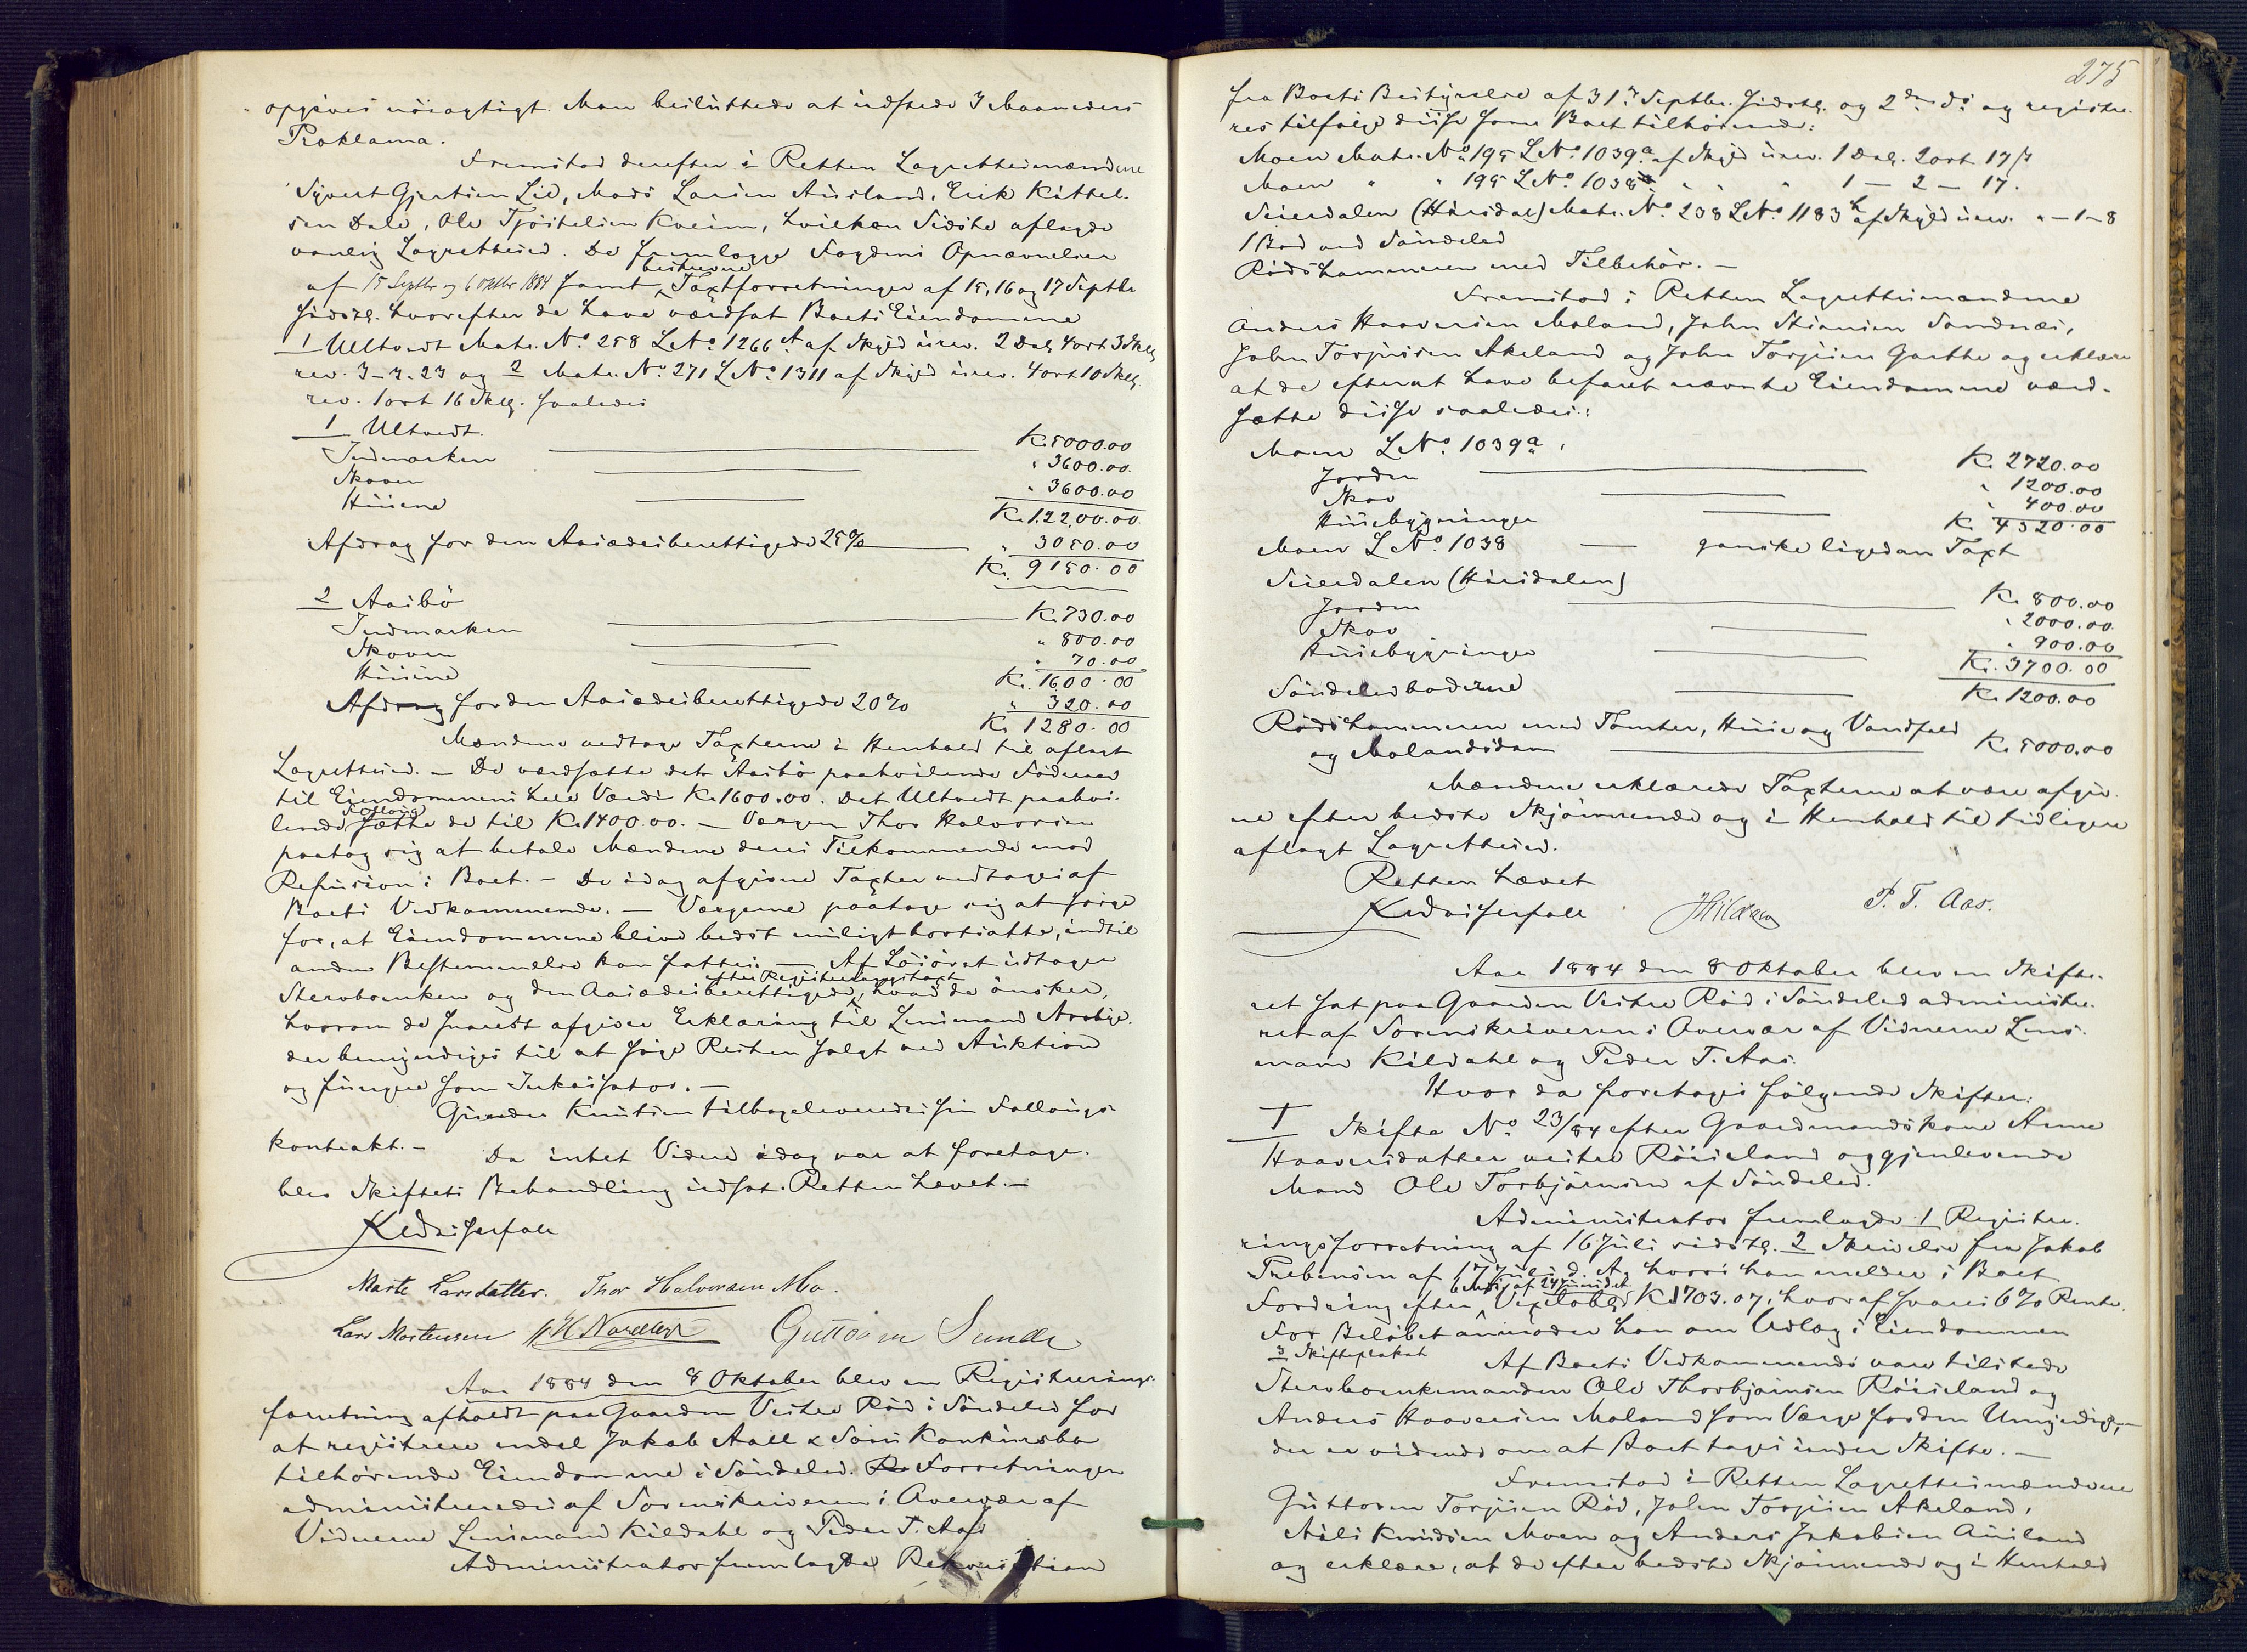 opgives nöiagtigt. Man besluttede at udstede 3 Maaneders
Proklama.
Fremstod derefter i Retten Lagrettesmændene
Syvert Gjertsen Lid, Mads Larsen Ausland, Erik Kittel-
sen Dale, Ole Tjöstelsen Kveim, hvilken Sidste aflagde
vanlig Lagrettesed. De fremlagge Fogdens Opnævnelser
af 15 Septbr og 6 Oktbr 1884 samt beskrevne Taxtforretninger af 15, 16 og 17 Septbr
sidstl. hvorefter de have værdsat Boets Eiendomme
1 Ulltvedt Matr. No. 258 LNo. 1266 a af Skyld urev. 2 Dal. 4 ort 3 Skl.
rev. 3-3-23 og 2 Matr. No. 271 LNo. 1311 af Skyld urev. 4 ort 10 Skl.
rev. 1 ort 16 Skl. saaledes
1 Ultvedt.
Indmarken K. 5000.00
Skoven " 3600.00
Husene " 3600.00
Kr. 12200.00
Afdrag for den Aasædesberettigede 25% " 3050.00
Kr. 9150.00
2 Aasbö
Indmarken Kr. 730.00
Skoven " 800.00
Husene " 70.00
Kr. 1600.00
Afdrag for den Aasædesberettigede 20% " 320.00
Kr. 1280.00
Mændene vedtage Taxterne i Henhold til aflagt
Lagrettesed. — De værdsatte det Aasbö paahvilende Föderaad
til Eiendommens hele Værdi Kr. 1600.00. Det Ultvedt paahvi-
lende Follaug sætte de til Kr. 1400.00. — Værgen Thor Halvorsen
paatog sig at betale Mændene deres Tilkommende mod
Refusion i Boet. — De idag afgivne Taxter vedtages af
Boets Vedkommende. — Værgerne paatage sig at sörge
for, at Eiendommene blive bedst muligt bortsatte, indtil
anden Bestemmelse kan fattes. — Af Lösöret udtager
Stervboenken og den Aasædesberettigede efter Registreringstaxt, hvad de önsker,
hvorom de snarest afgiver Erklæring til Lensmand
der bemyndiges til at söge Resten solgt ved Auktion
og fungere som Inkassator. —
Gunder Knutsen tilbageleveredes sin Follaugs-
kontrakt. — Da intet Videre idag var at foretage.
blev Skiftets Behandling udsat. Retten hævet. —
Marte Larsdatter. Thor Halvorsen Mo.
Lars Mortensen Guttorm Sunde
Aar 1884 den 8 Oktober blev en Registrerings-
forretning afholdt paa Gaarden Vestre Röd i Söndeled for
at registrere endel Jakob Aall & Söns Konkursbo
tilhörende Eiendomme i Söndeled. Forretningen
administreredes af Sorenskriveren i Overvær af
Vidnerne Lensmand Kildahl og Peder T. Aas
Administrator fremlagde Rekvisition
275
fra Boets Bestyrelse af 31. Septbr. sidstl. og 2den ds. og registre-
res tilfølge disse som Boet tilhörende:
Moen Matr. No. 195 LNo. 1039 a af Skyld urev. 1 Dal. 2 ort 17 ß
Moen " " 195 LNo. 1038 " " " 1 — 2 — 17.
Seierdalen (Husdal) Matr. No. 238 LNo. 1183 b af Skyld urev. " — 1 — 8
1 Bod ved Söndeled
Rödshammeren med Tilbehör. —
Fremstod i Retten Lagrettesmændene
Anders Haaversen Moland, John Stiansen Sandnæs,
John Torjusen Akeland og John Torjusen Garthe og erklære
at de efterat have befaret nævnte Eiendomme værd-
sætte disse saaledes:
Moen LNo. 1039 a.
Jorden K. 2720.00
Skov " 1200.00
Husebygninger " 400.00
K. 4320.00
Moen LNo. 1038 — ganske ligedan Taxt
Seierdalen (Husdalen)
Jorden K. 800.00
Skov " 2000.00
Husebygninger " 900.00
Kr. 3700.00
Söndeledboderne K. 1200.00
Rödshammeren med Tomter, Huse og Vandfald
og Molandsdam K. 5000.00
Mændene erklærede Taxterne at være afgiv-
ne efter bedste Skjönnende og i Henhold til tidligere
aflagt Lagrettesed.
Retten hævet
JKildahl P. T. Aas.
Aar 1884 den 8 Oktober blev en Skifte-
ret sat paa Gaarden Vestre Röd i Söndeled administre-
ret af Sorenskriveren i Overvær af Vidnerne Lens-
mand Kildahl og Peder T. Aas.
Hvor da foretages fölgende Skifter:
I Skifte No. 23/84 efter Gaardmandskone Anne
Haaversdatter vestre Röisland og gjenlevende
Mand Ole Torbjörnsen af Söndeled.
Administrator fremlagde 1 Registre-
ringsforretning af 16 Juli sidstl. 2 Skrivelse fra Jakob
Prebensen af 17 Juli d. A. hvori han melder i Boet
Fordring efter Vexelobl. K. 1703.07, hvoraf svares 6% Rente.
For Belöbet anmoder han om Udlæg i Eiendommen
3 Skifteplakat Af Boets Vedkommende vare tilstede
Stervboenkemanden Ole Thorbjörnsen Röisland og
Anders Haaversen Moland som Værge for den Umyndige, —
der er vidende om at Boet tages under Skifte. —
Fremstod i Retten Lagrettesmændene
Guttorm Torjusen Röd, John Torjusen Akeland,
Nils Knudsen Moen og Anders Jakobsen Ausland
og erklære, at de efter bedste Skjönnende og i Henhold